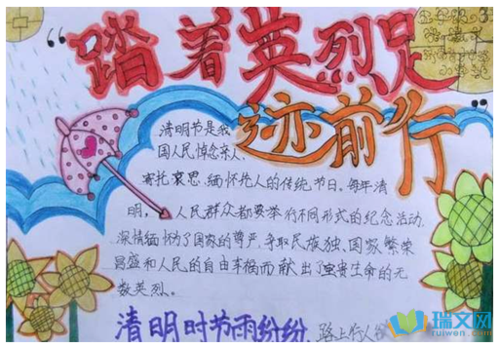 踏着英烈足
迹前行
清明节是我
国人民悼念亲人、
寄托哀思、缅怀先人的传统节日,每年清
明,人民群众都要举行不同形式的纪念活动,
深情缅怀为了国家的尊严,争取民族独、国家繁荣
昌盛和人民的自由幸福而献出了宝贵生命的无
数英烈。
清明时节雨纷纷,路上行人欲
瑞文网
ruiwen.com